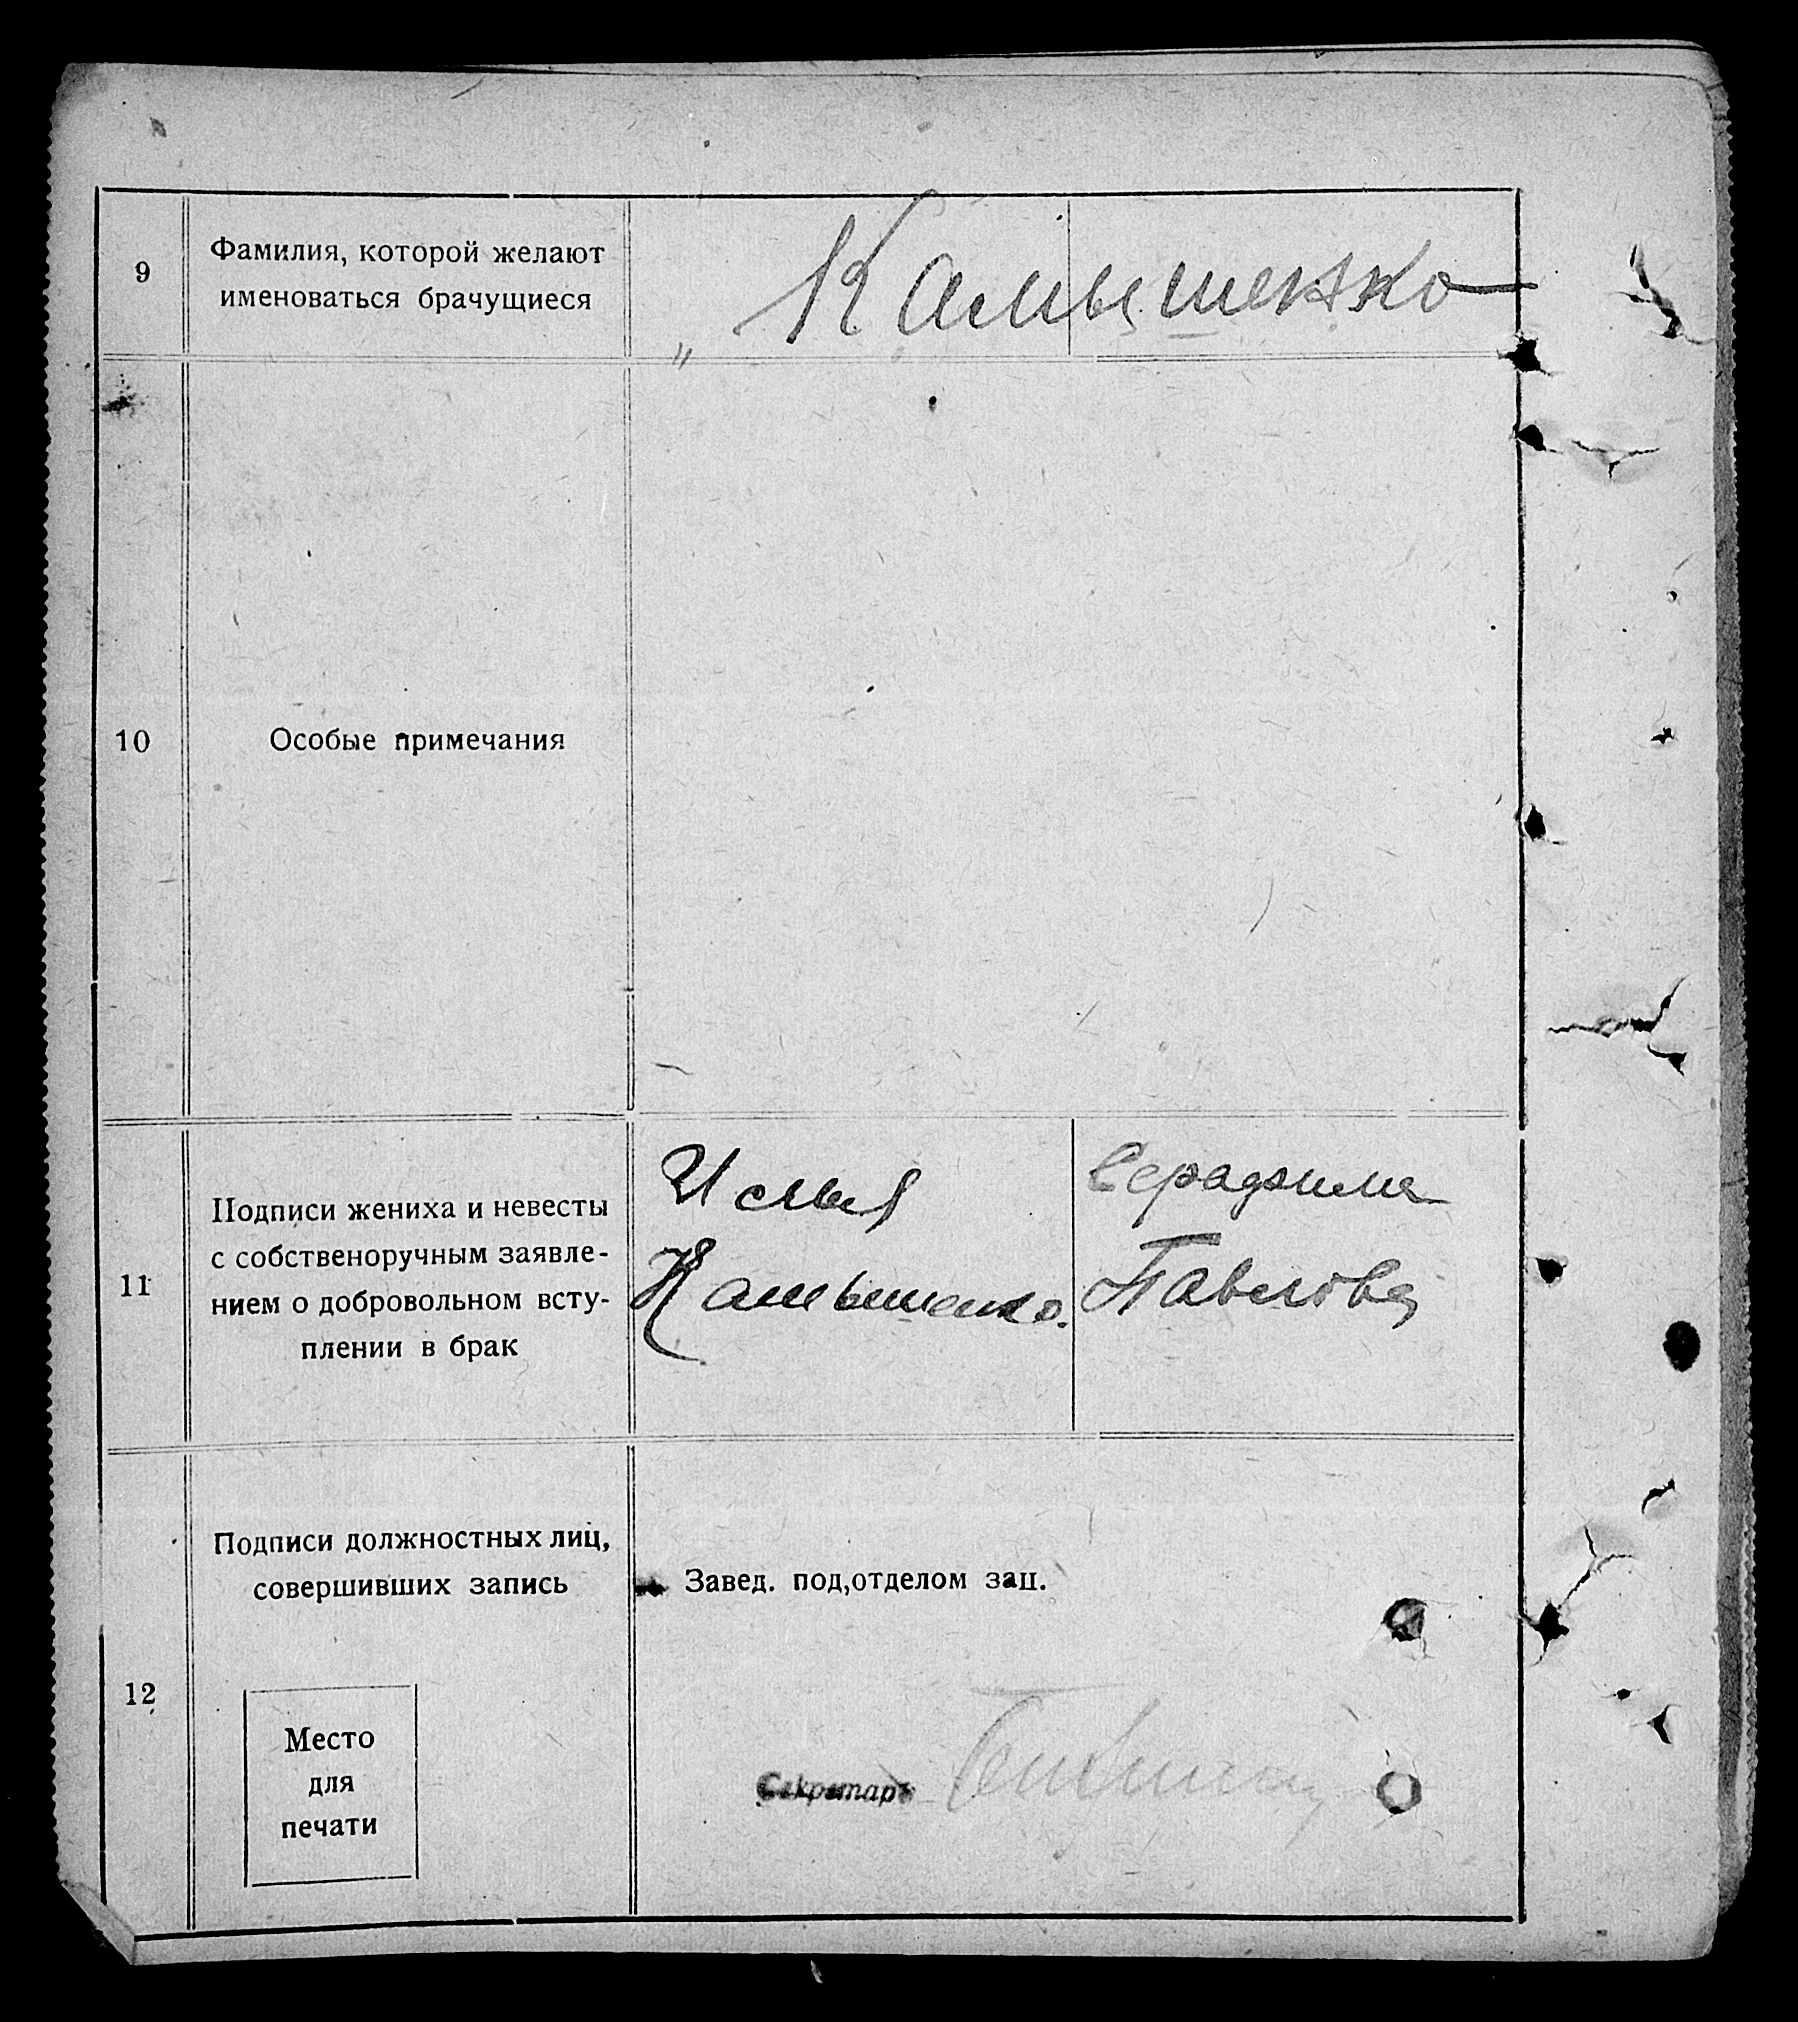 9
Фамилия, которой желают
именоваться брачущиеся
„ Камышенко
10
Особые примечания
11
Подписи жениха и невесты
с собственоручным заявле-
нием о добровольном всту-
плении в брак
Камышенко.
Серафима
Павлова
12
Подписи должностных лиц,
совершивших запись
Место
для
печати
Завед. под,отделом зап.
Секретарь